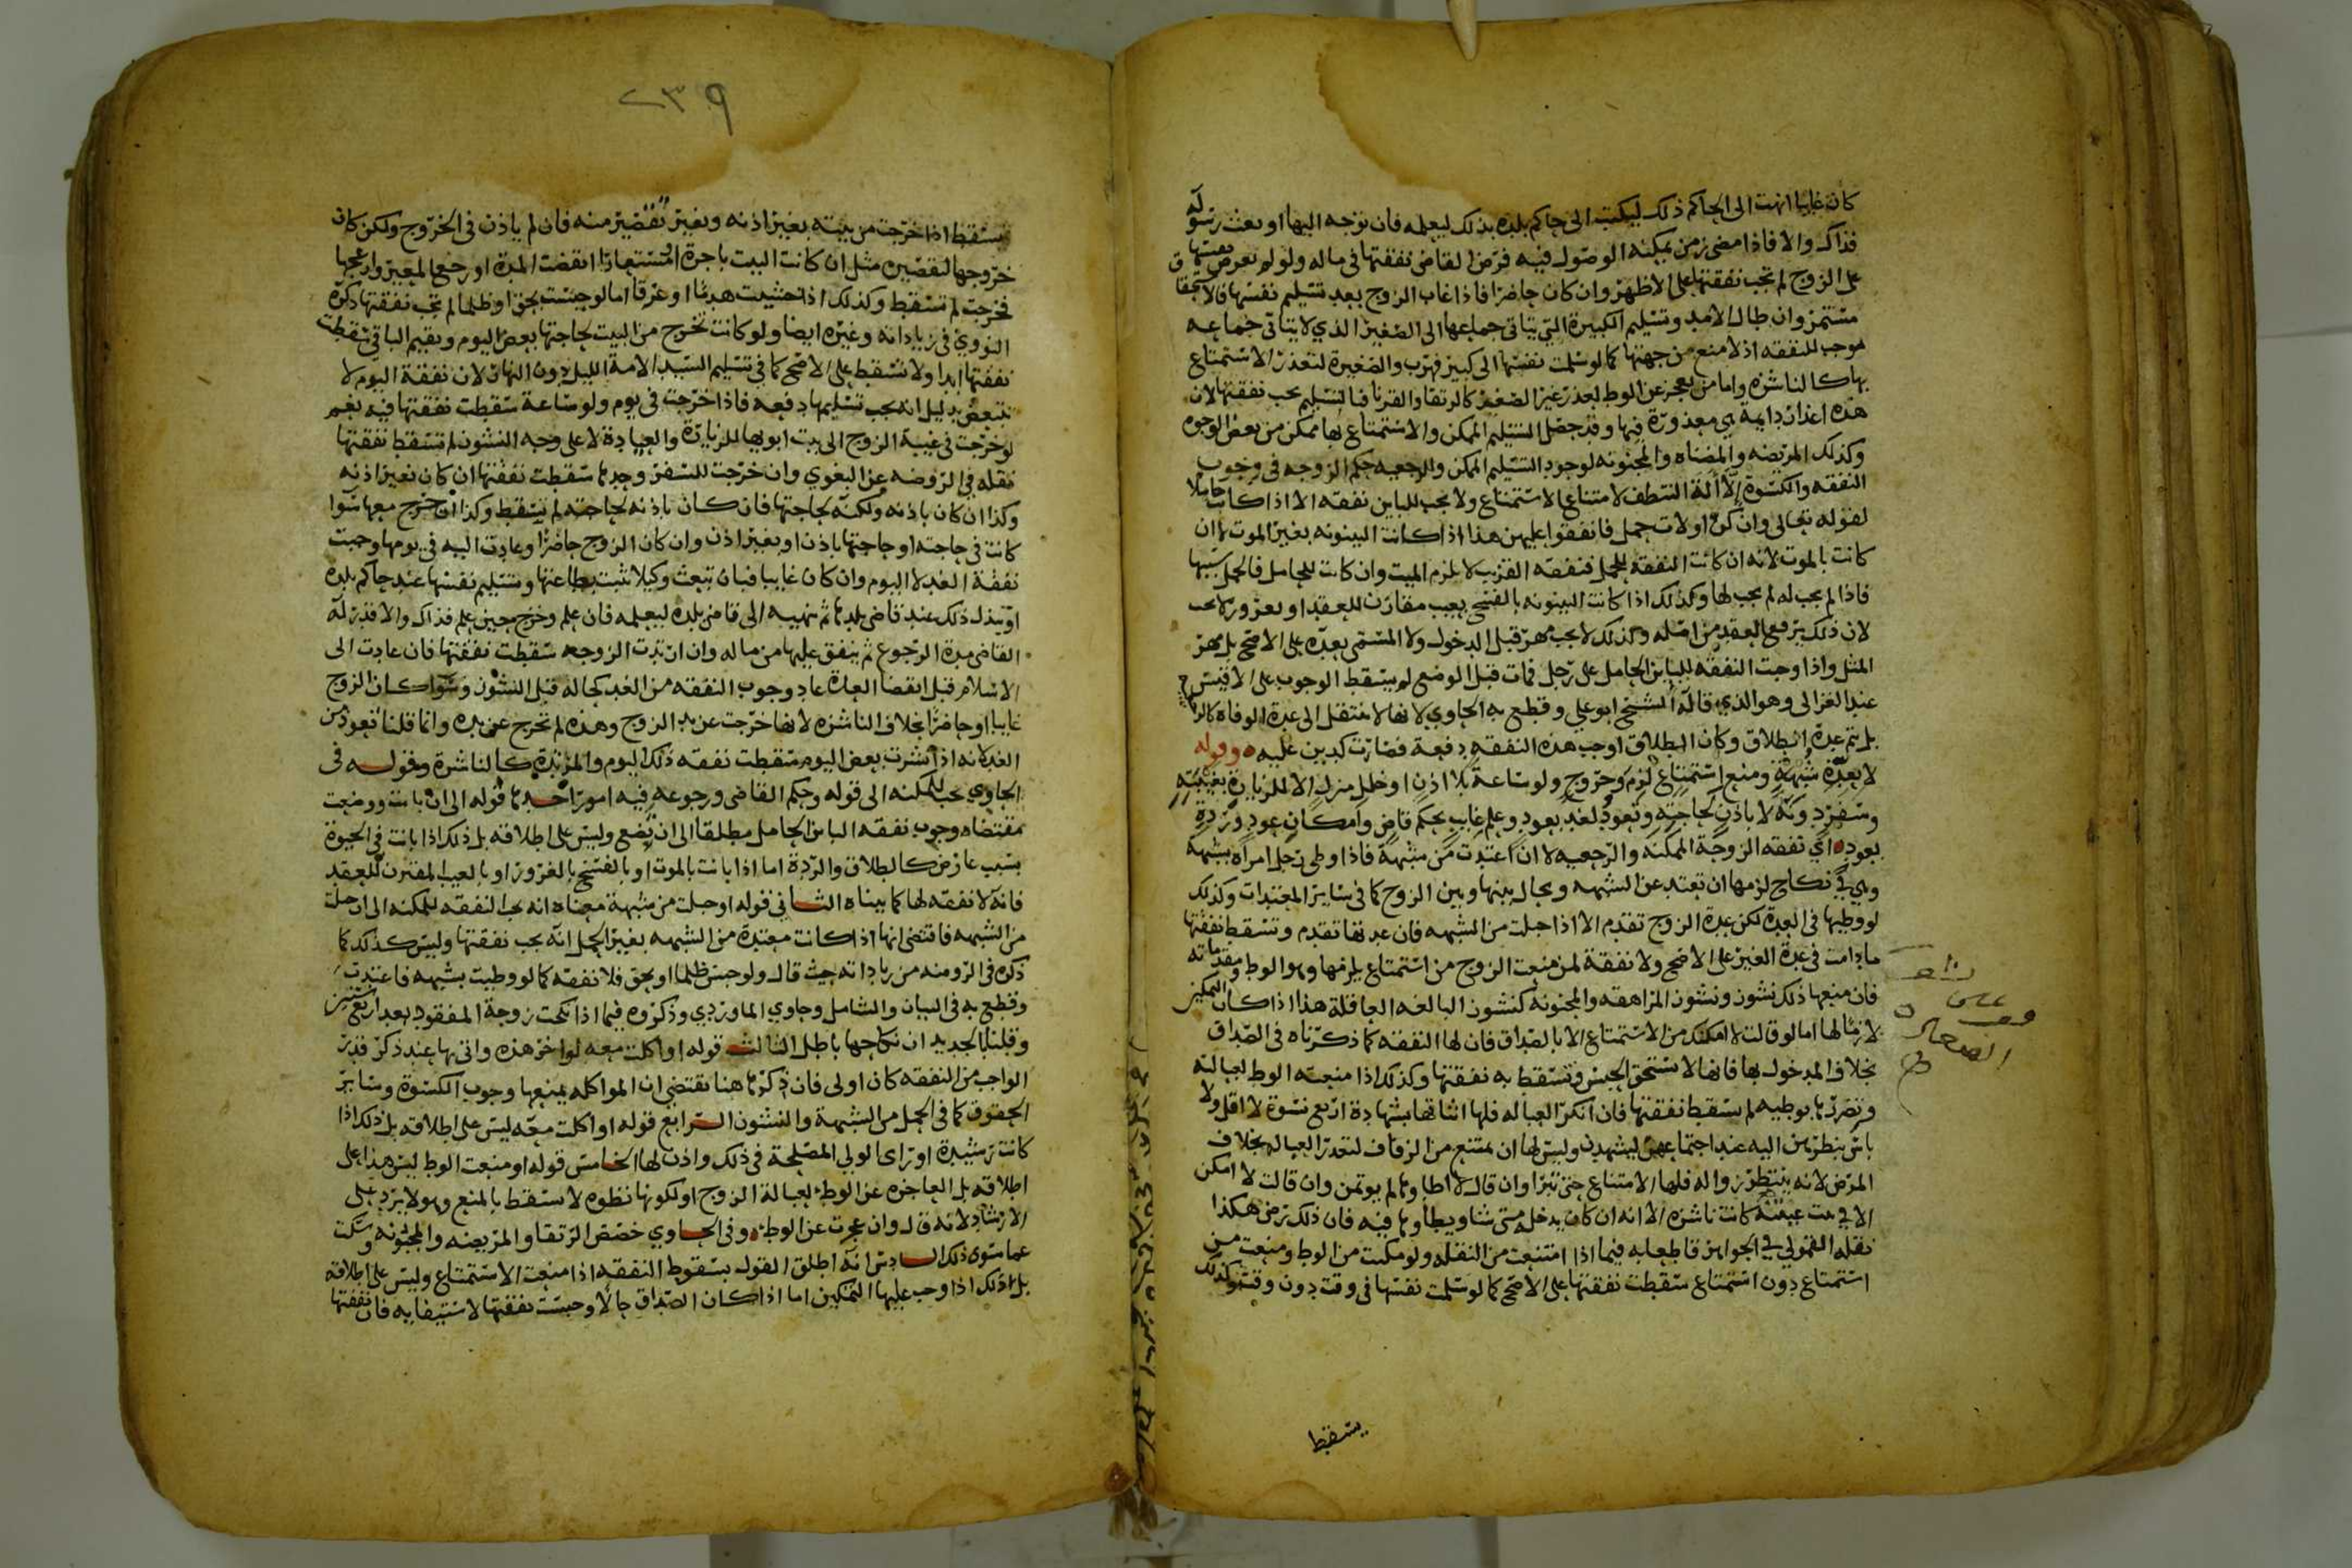 كان غايبا انهت الى الحاكم ذلك ليكتب الى حاكم بلده بذلك ليعلمه فان توجه اليها او بعث رسوله
فذاك والا فاذا مضى زمن يمكنه الوصول فيه فرض القاضي نفقتها في ماله ولو لم تعرض نفسها
على الزوج لم تجب نفقتها على الاظهر وان كان حاضرا فاذا غاب الزوج بعد تسليم نفسها فالاستحقاق
مستمر وان طال الامد وتسليم الكبيرة التي يتاتى جماعها الى الصغير الذي لا يتاتى جماعه
موجب للنفقه اذ لا منع من جهتها كما لو سلمت نفسها الى كبير فهرب والصغيرة لتعذر الاستمتاع
بها كالناشزه واما من يعجز عن الوطء لعذر غير الصغر كالرتقا والقرنا فبالتسليم تجب نفقتها لان
هذه اعذار دايمة هي معذورة فيها وقد حصل التسليم الممكن والاستمتاع بها ممكن من بعض الوجوه
وكذلك المريضه والمضناه والمجنونه لوجود التسليم الممكن والرجعيه حكم الزوجه في وجوب
النفقه والكسوة الا الة التنظف لامتناع الاستمتاع ولا تجب للباين نفقه الا اذا كانت حاملا
لقوله تعالى وان كن اولات حمل فانفقوا عليهن هذا اذا كانت البينونه بغير الموت لا ان
كانت بالموت لانه ان كانت النفقه للحمل فنفقه القريب لا تلزم الميت وان كانت للحامل فالحمل سببها
فاذا لم يجب له لم يجب لها وكذلك اذا كانت البينونه بالفسخ بعيب مقارن للعقد او بغرور لا تجب
لان ذلك يرفع العقد من اصله وكذلك لا يجب مهر قبل الدخول ولا المسمى بعده على الاصح بل مهر
المثل واذا وجبت النفقه للباين الحامل على رجل فمات قبل الوضع لم يسقط الوجوب على الاقيس
عند الغزالي وهو الذي قاله الشيخ ابو علي وقطع به الحاوي لانها لا تنتقل الى عدة الوفاة
بل تتم عدة الطلاق وكان الطلاق اوجب هذه النفقه دفعة فصارت كدين عليه ه وقوله
لا بعدة شبهة ومنع استمتاع لزم وخروج ولو ساعة بلا اذن او خلل منزل الا للزيارة بغيبته
وسفر دونه لا باذن لحاجته وتعود لغد بعود وعلم غايب بحكم قاض وامكان عود وردة
بعود ه اي نفقه الزوجة الممكنه والرجعيه لا ان اعتدت من شبهة فاذا وطى رجل امراة بشبهة
وهي في نكاح لزمها ان تعتد عن الشبهه ويحال بينها وبين الزوج كما في ساير المعتدات وكذلك
لو وطيها في العدة لكن عدة الزوج تقدم الا اذا حبلت من الشبهه فان عدتها تقدم وتسقط نفقتها
ما دامت في عدة الغير على الاصح ولا نفقة لمن منعت الزوج من استمتاع يلزمها وهو الوط ومقدماته
فان منعها ذلك نشوز ونشوز المراهقه والمجنونة كنشوز البالغه العاقلة هذا اذا كان التمكين
لازما لها اما لو قالت لا امكنك من الاستمتاع الا بالصداق فان لها النفقه كما ذكرناه في الصداق
بخلاف المدخول بها فانها لا تستحق الحبس وتسقط به نفقتها وكذلك اذا منعته الوط لعبالته
وتضررها بوطيه لم تسقط نفقتها فان انكر العباله فلها اثباتها بشهادة اربع نسوة لا اقل ولا
باس بنظرهن اليه عند اجتماعهما ليشهدن وليس لها ان تمتنع من الزفاف لتعذر العباله بخلاف
المرض لانه ينتظر زواله فلها الامتناع حتى تبرا وان قال لا اطاوها لم يوتمن وان قالت لا امكن
الا في بيت عينته كانت ناشزه الا انه ان كان يدخله متى شا ويطاوها فيه فان ذلك ترض هكذا
نقله القمولي في الجواهر قاطعا به فيما اذا امتنعت من النقله ولو مكنت من الوط ومنعت من
استمتاع دون استمتاع سقطت نفقتها على الاصح كما لو سلمت نفسها في وقت دون وقت وكذلك
يسقط
٢٣٩
تسقط اذا خرجت من بيته بغير اذنه وبغير تقصير منه فان لم ياذن في الخروج ولكن كان
خروجها لتقصير مثل ان كانت البيت باجرة او مستعارا انقضت المدة او رجع المعير وازعجها
فخرجت لم تسقط وكذلك اذا خشيت هدما او غرقا اما لو حبست بحق او ظلما لم تجب نفقتها ذكره
النووي في زياداته وغيره ايضا ولو كانت تخرج من البيت لحاجتها بعض اليوم وتقيم الباقي سقطت
نفقتها ابدا ولا تتقسط على الاصح كما في تسليم السيد الامة الليل دون النهار لان نفقة اليوم لا
تتبعض بدليل انه يجب تسليمها دفعه فاذا خرجت في يوم ولو ساعة سقطت نفقتها فيه نعم
لو خرجت في غيبة الزوج الى بيت ابويها للزيارة والعيادة لا على وجه النشوز لم تسقط نفقتها
نقله في الروضه عن البغوي وان خرجت للسفر وحدها سقطت نفقتها ان كان بغير اذنه
وكذا ان كان باذنه ولكنه لحاجتها فان كان باذنه لحاجته لم يسقط وكذا ان خرج معها سوا
كانت في حاجته او حاجتها باذن او بغير اذن وان كان الزوج حاضرا وعادت اليه في يومها وجبت
نفقة الغد لا اليوم وان كان غايبا فبان تبعث وكيلا تثبت بطاعتها وتسليم نفسها عند حاكم بلده
او تبذل ذلك عند قاضي بلدها ثم ينهيه الى قاضي بلده ليعلمه فان علم وخرج حين علم فذاك والا قدر له
القاضي مدة الرجوع ثم ينفق عليها من ماله وان ارتدت الزوجه سقطت نفقتها فان عادت الى
الاسلام قبل انقضا العدة عاد وجوب النفقه من الغد كحاله قبل النشوز وسوا كان الزوج
غايبا او حاضرا بخلاف الناشزه لانها خرجت عن يد الزوج وهذه لم تخرج عن يده وانما قلنا تعود من
الغد لانه اذا نشزت بعض اليوم سقطت نفقه ذلك اليوم والمرتدة كالناشزة وقوله في
الحاوي تجب للممكنه الى قوله وحكم القاضي ورجوعه فيه امور احدها قوله الى ان بانت ووضعت
مقتضاه وجوب نفقه الباين الحامل مطلقا الى ان تضع وليس على اطلاقه بل ذلك اذا بانت في الحيوة
بسبب عارض كالطلاق والردة اما اذا بانت بالموت او بالفسخ بالغرور او بالعيب المقترن للعقد
فانه لا نفقه لها كما بيناه الثاني قوله او حبلت من شبهة معناه انه تجب النفقه للممكنه الى ان حبلت
من الشبهه فاقتضى انها اذا كانت معتدة من الشبهه بغير الحمل انه يجب نفقتها وليس كذلك كما
ذكره في الروضه من زياداته حيث قال ولو حبس ظلما او بحق فلا نفقه كما لو وطيت بشبهه فاعتدت
وقطع به في البيان والشامل وحاوي الماوردي وذكروه فيما اذا نكحت زوجة المفقود بعد اربع سنين
وقلنا بالجديد ان نكاحها باطل الثالث قوله او اكلت معه لو اخر هذه واتى بها عند ذكر قدر
الواجب من النفقه كان اولى فان ذكرها هنا يقتضي ان المواكله يمنعها وجوب الكسوة وساير
الحقوق كما في الحمل من الشبهة والنشوز الرابع قوله او اكلت معه ليس على اطلاقه بل ذلك اذا
كانت رشيدة او راى الولي المصلحة في ذلك واذن لها الخامس قوله او منعت الوط ليس هذا على
اطلاقه بل العاجزه عن الوطء لعبالة الزوج او لكونها نضوه لا تسقط بالمنع وهو لا يرد على
الارشاد لانه قال وان عجزت عن الوطء ه وفي الحاوي خصص الرتقا والمريضه والمجنونه وسكت
عما سوى ذلك السادس انه اطلق القول بسقوط النفقه اذا منعت الاستمتاع وليس على اطلاقه
بل ذلك اذا وجب عليها التمكين اما اذا كان الصداق حالا وحبست نفقتها لاستيفايه فان نفقتها